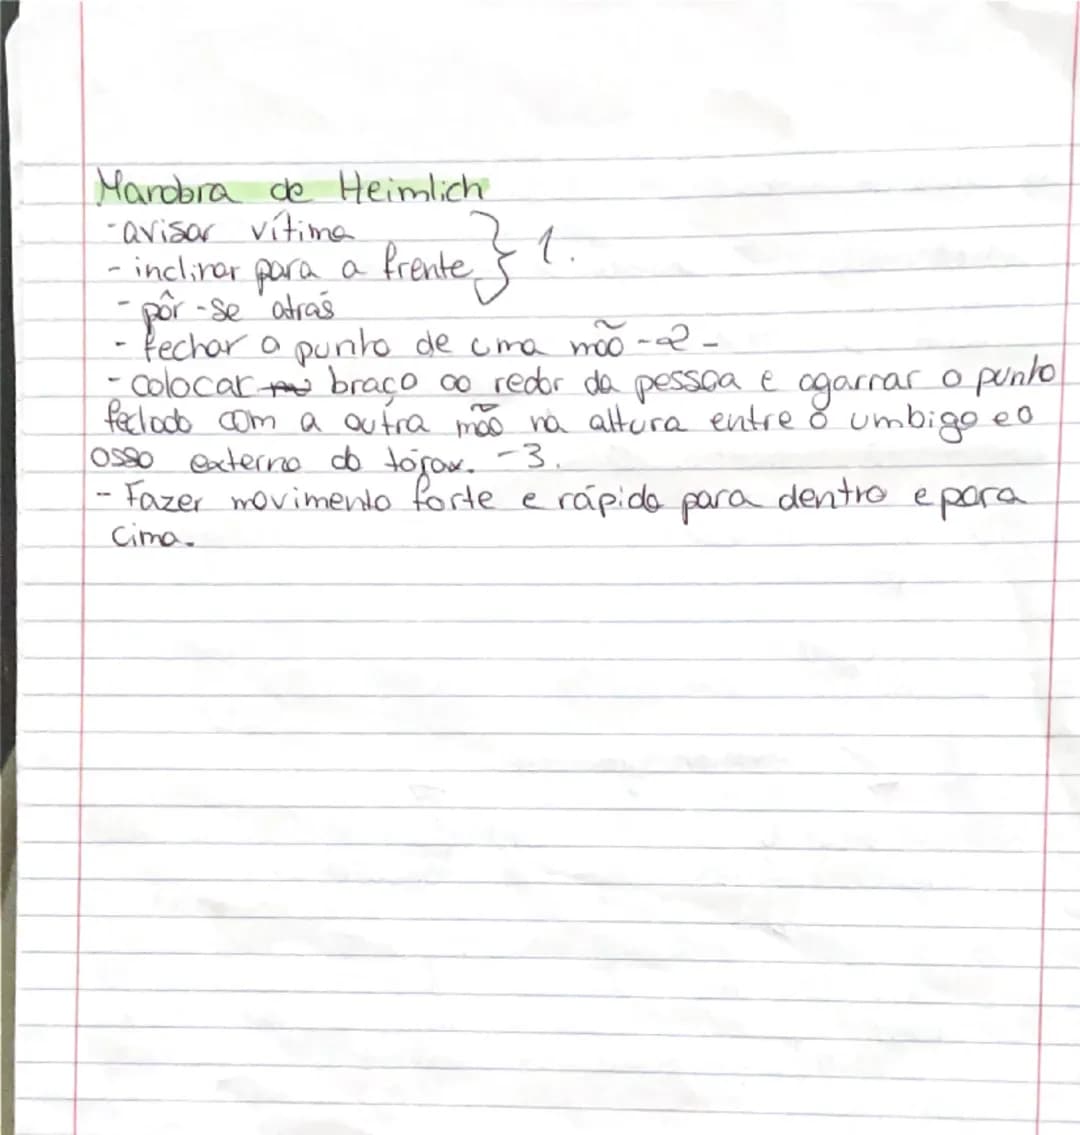 Manobra de Heimlich
- avisar vítima
- inclinar para a frente } 1.
- pôr-se atrás
- fechar o punho de uma mão -2-
- colocar braço ao redor da pessoa e agarrar o punho
fechado com a outra mão na altura entre o umbigo e o
osso externo do tórax. -3.
- Fazer movimento forte e rápido para dentro e para
cima.